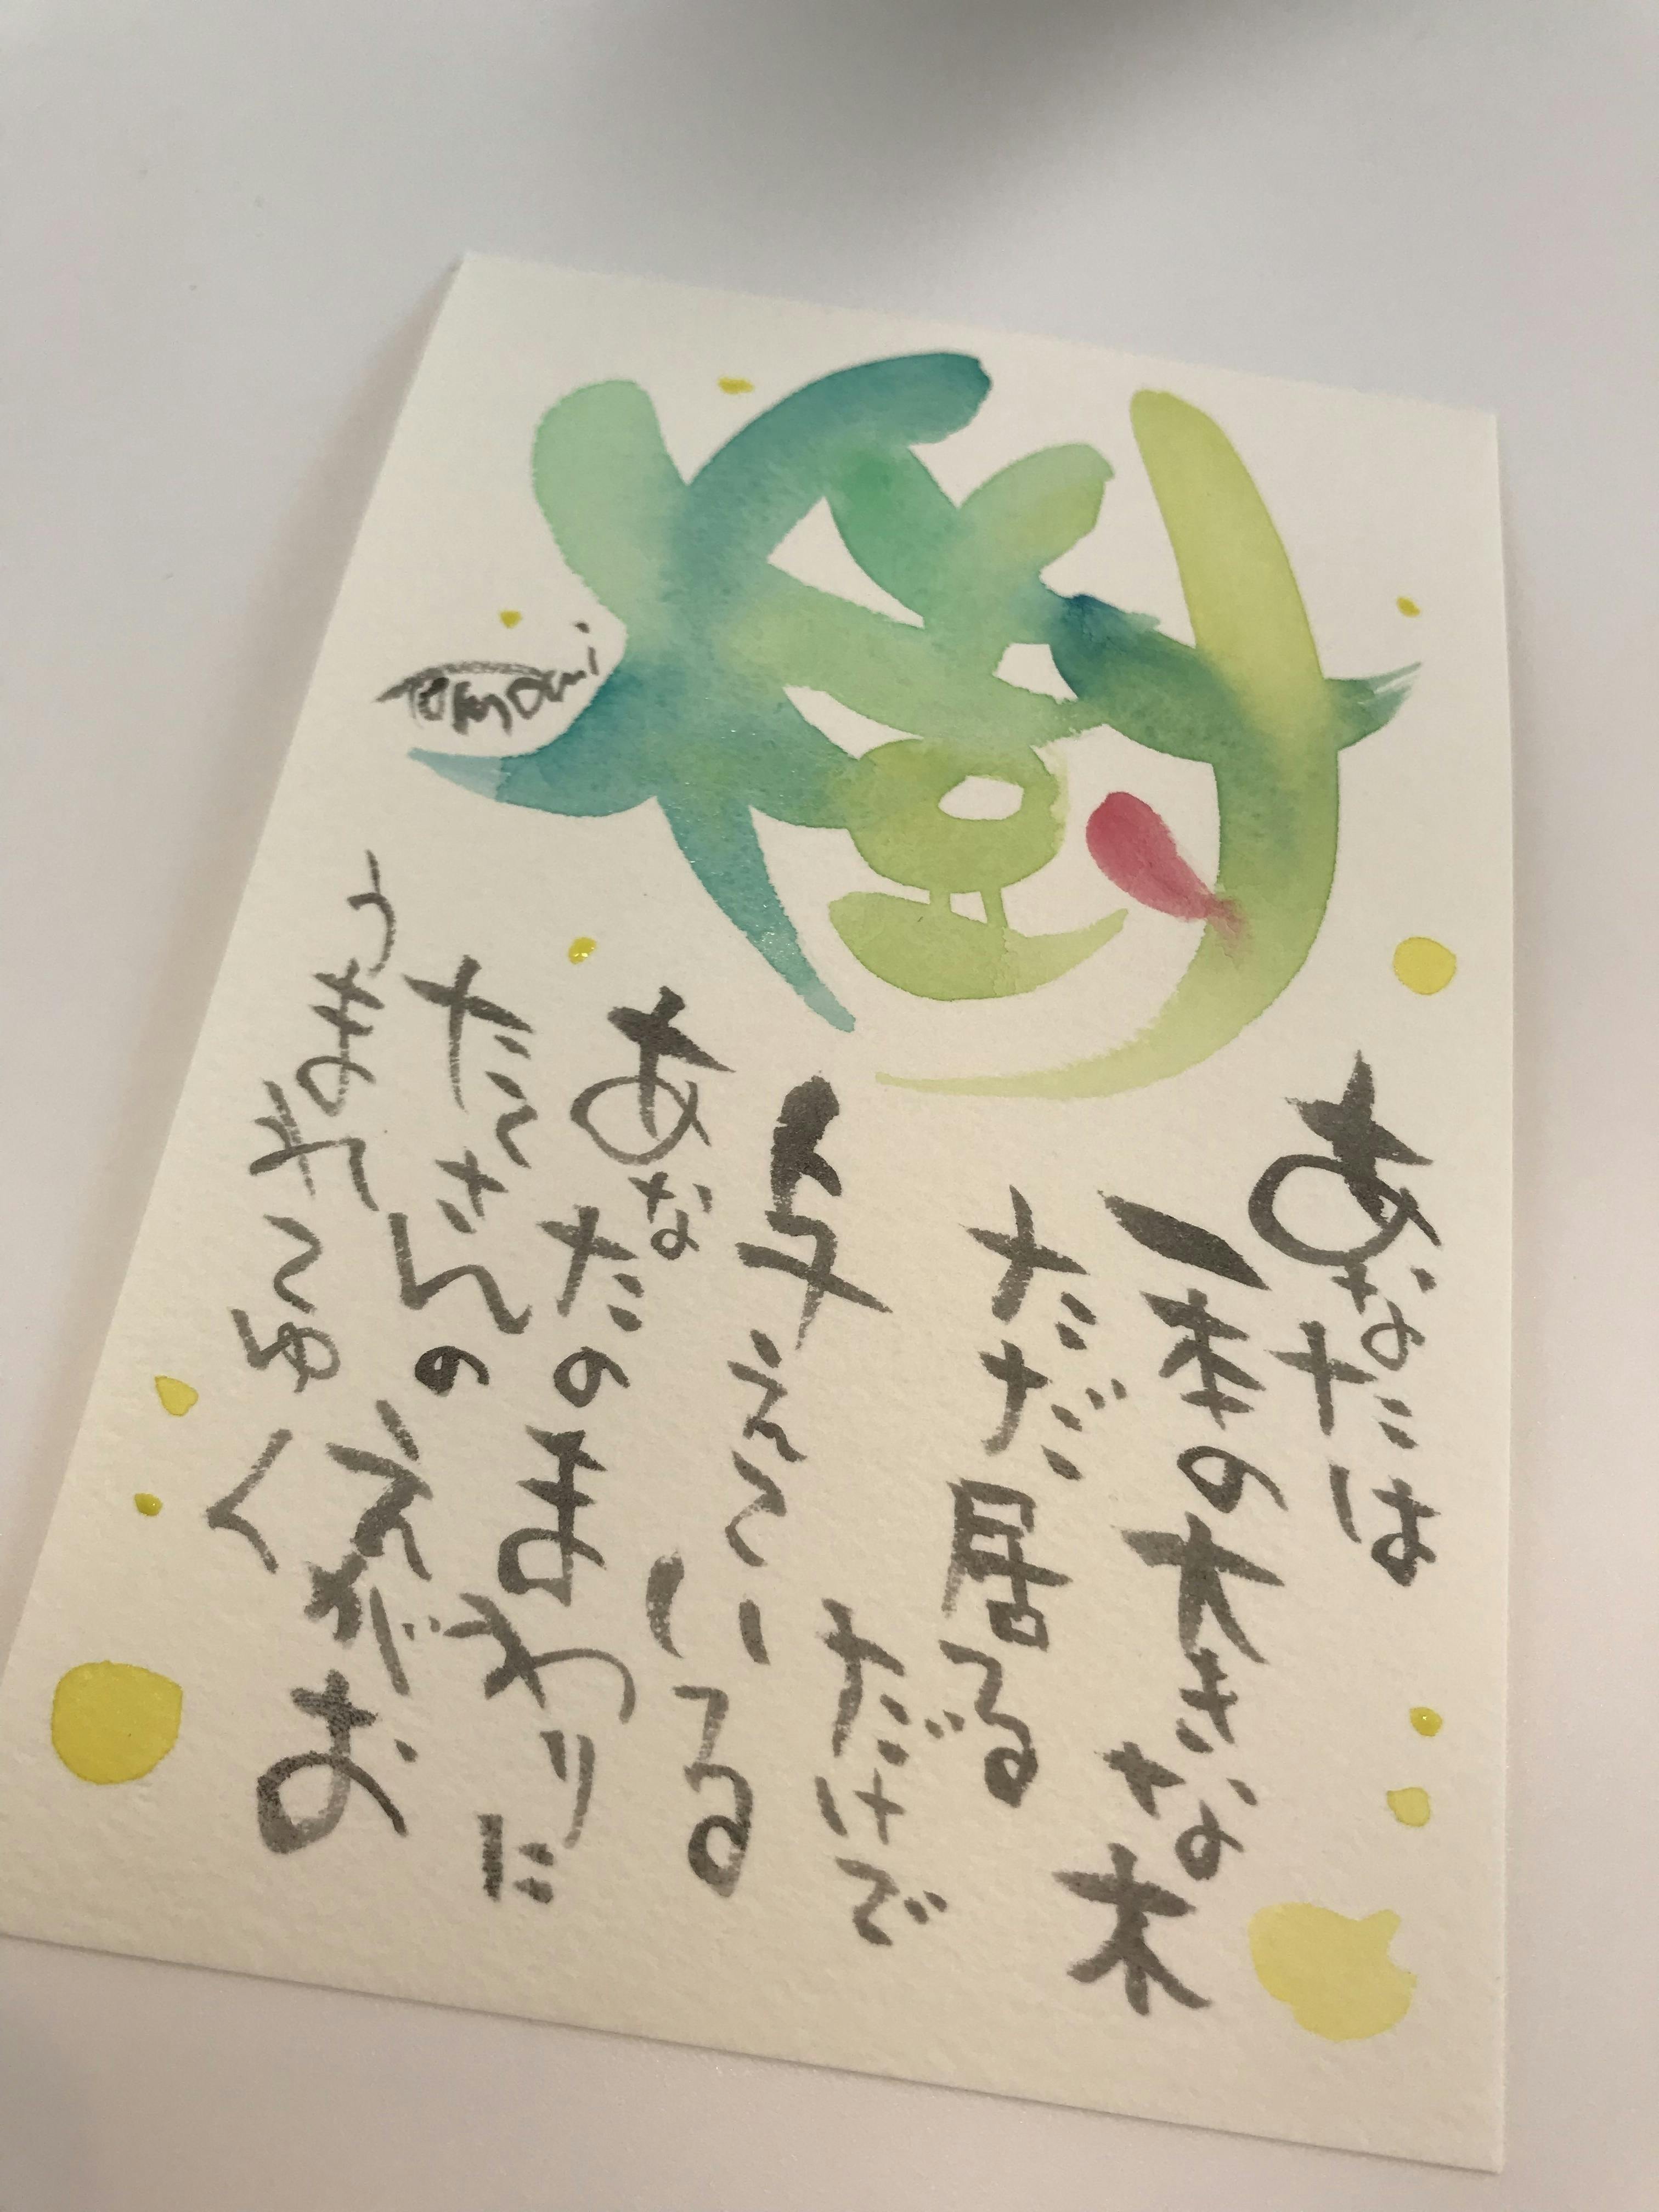 樹
あなたは
一本の大きな木
ただ居る
だけで
支えている
あなたのまわりに
たくさんのえがお
うまれてゆく